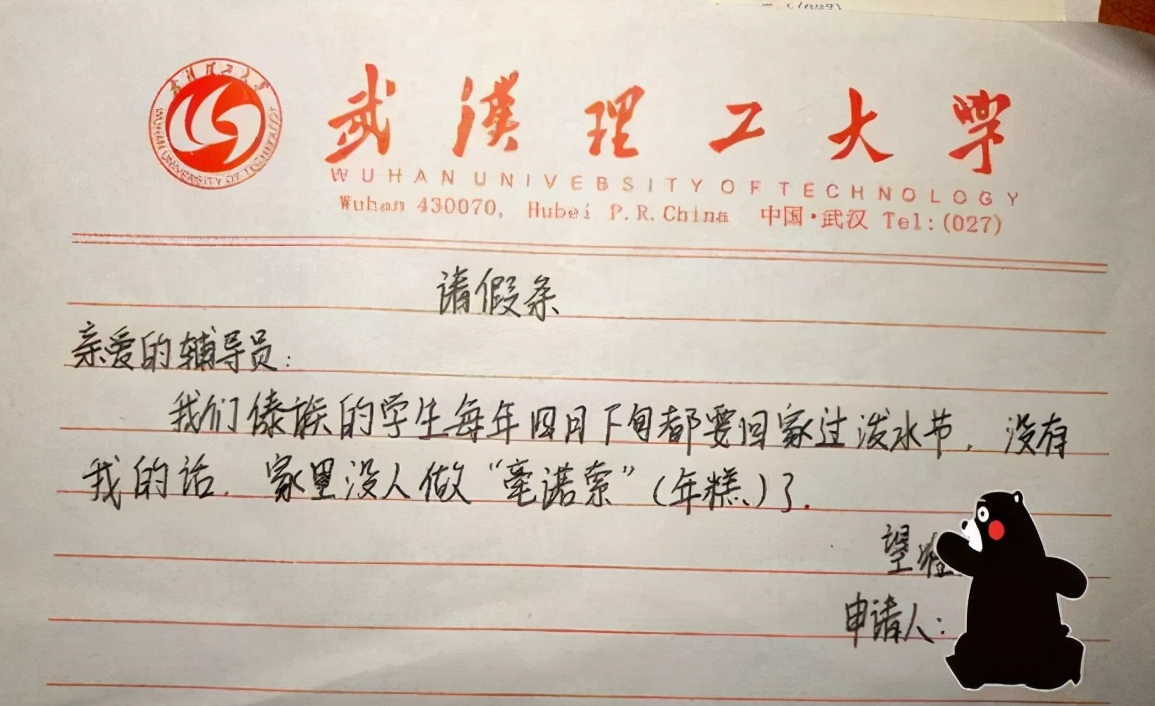 WUHAN UNIVERSITY OF TECHNOLOGY
武漢理工大學
WUHAN UNIVEBSITY OF TECHNOLOGY
Wuhan 430070, Hubei P.R.China 中国·武汉 Tel:(027)
请假条
亲爱的辅导员:
我们傣族的学生每年四月下旬都要回家过泼水节，没有
我的话，家里没人做“毫诺索”(年糕)了.
望
申请人: